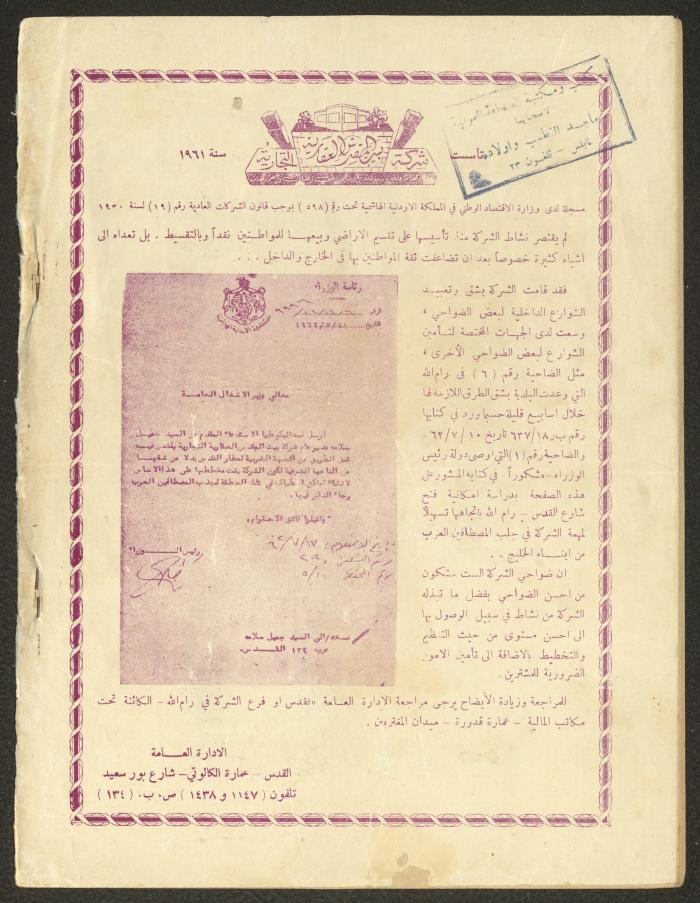 مكتب ومكتبة الصحافة العربية
لاصحابها
ماجد القطب واولاده
نابلس - تلفون ٢٣
تاسست
شركة بيت المقدس العقارية التجارية
سنة ١٩٦١
مسجلة لدى وزارة الاقتصاد الوطني في المملكة الاردنية الهاشمية تحت رقم (٥٩٨) بموجب قانون الشركات العادية رقم (١٩) لسنة ١٩٣٠
لم يقتصر نشاط الشركة منذ تأسيسها على تقسيم الاراضي وبيعها للمواطنين نقداً وبالتقسيط . بل تعداه الى
اشياء كثيرة خصوصاً بعد ان تضاعفت ثقة المواطنين بها في الخارج والداخل . . .
فقد قامت الشركة بشق وتعبيد
الشوارع الداخلية لبعض الضواحي ،
وسعت لدى الجهات المختصة لتأمين
الشوارع لبعض الضواحي الأخرى ،
مثل الضاحية رقم (٦) في رام الله
التي وعدت البلدية بشق الطرق اللازمة لها
خلال اسابيع قليلة حسبما ورد في كتابها
رقم ب ر ٦٣٧/١٨ تاريخ ٦٣/٧/١٠
والضاحية رقم (١) التي اوصى دولة رئيس
الوزراء - مشكوراً في كتابه المنشور على
هذه الصفحة بدراسة امكانية فتح
شارع القدس - رام الله باتجاهها تسهيلا
لمهمة الشركة في جلب المصطافين العرب
من ابناء الخليج . .
ان ضواحي الشركة الست ستكون
من احسن الضواحي بفضل ما تبذله
الشركة من نشاط في سبيل الوصول بها
الى احسن مستوى من حيث التنظيم
والتخطيط بالاضافة الى تأمين الامور
الضرورية للمشترين .
رئاسة الوزراء
الرقم
التاريخ
معالي وزير الاشغال العامة
ارسل لمعاليكم طيا الاستدعاء المقدم من السيد جميل
سلامه مدير عام شركة بيت المقدس العقارية التجارية
وتفضلوا بقبول فائق الاحترام ،
رئيس الوزراء
تاريخ الاستلام :
نسخة / الى السيد جميل سلامه
ص ب ١٣٤ القدس .
للمراجعة وزيادة الأيضاح يرجى مراجعة الادارة العامة بالقدس او فرع الشركة في رام الله - الكائنة تحت
مكاتب المالية - عمارة قدورة - ميدان المغتربين .
الادارة العامة
القدس - عمارة الكالوتي - شارع بور سعيد
تلفون (١١٤٧ و ١٤٣٨) ص . ب . (١٣٤)